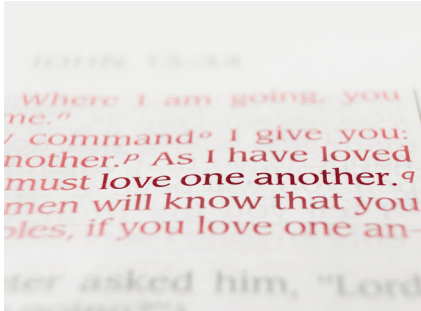 JOHN 13:34
Where I am going, you
me.ⁿ
command° I give you:
nother.ᵖ As I have loved
must love one another.q
men will know that you
ples, if you love one an-
ter asked him, "Lord
going?"